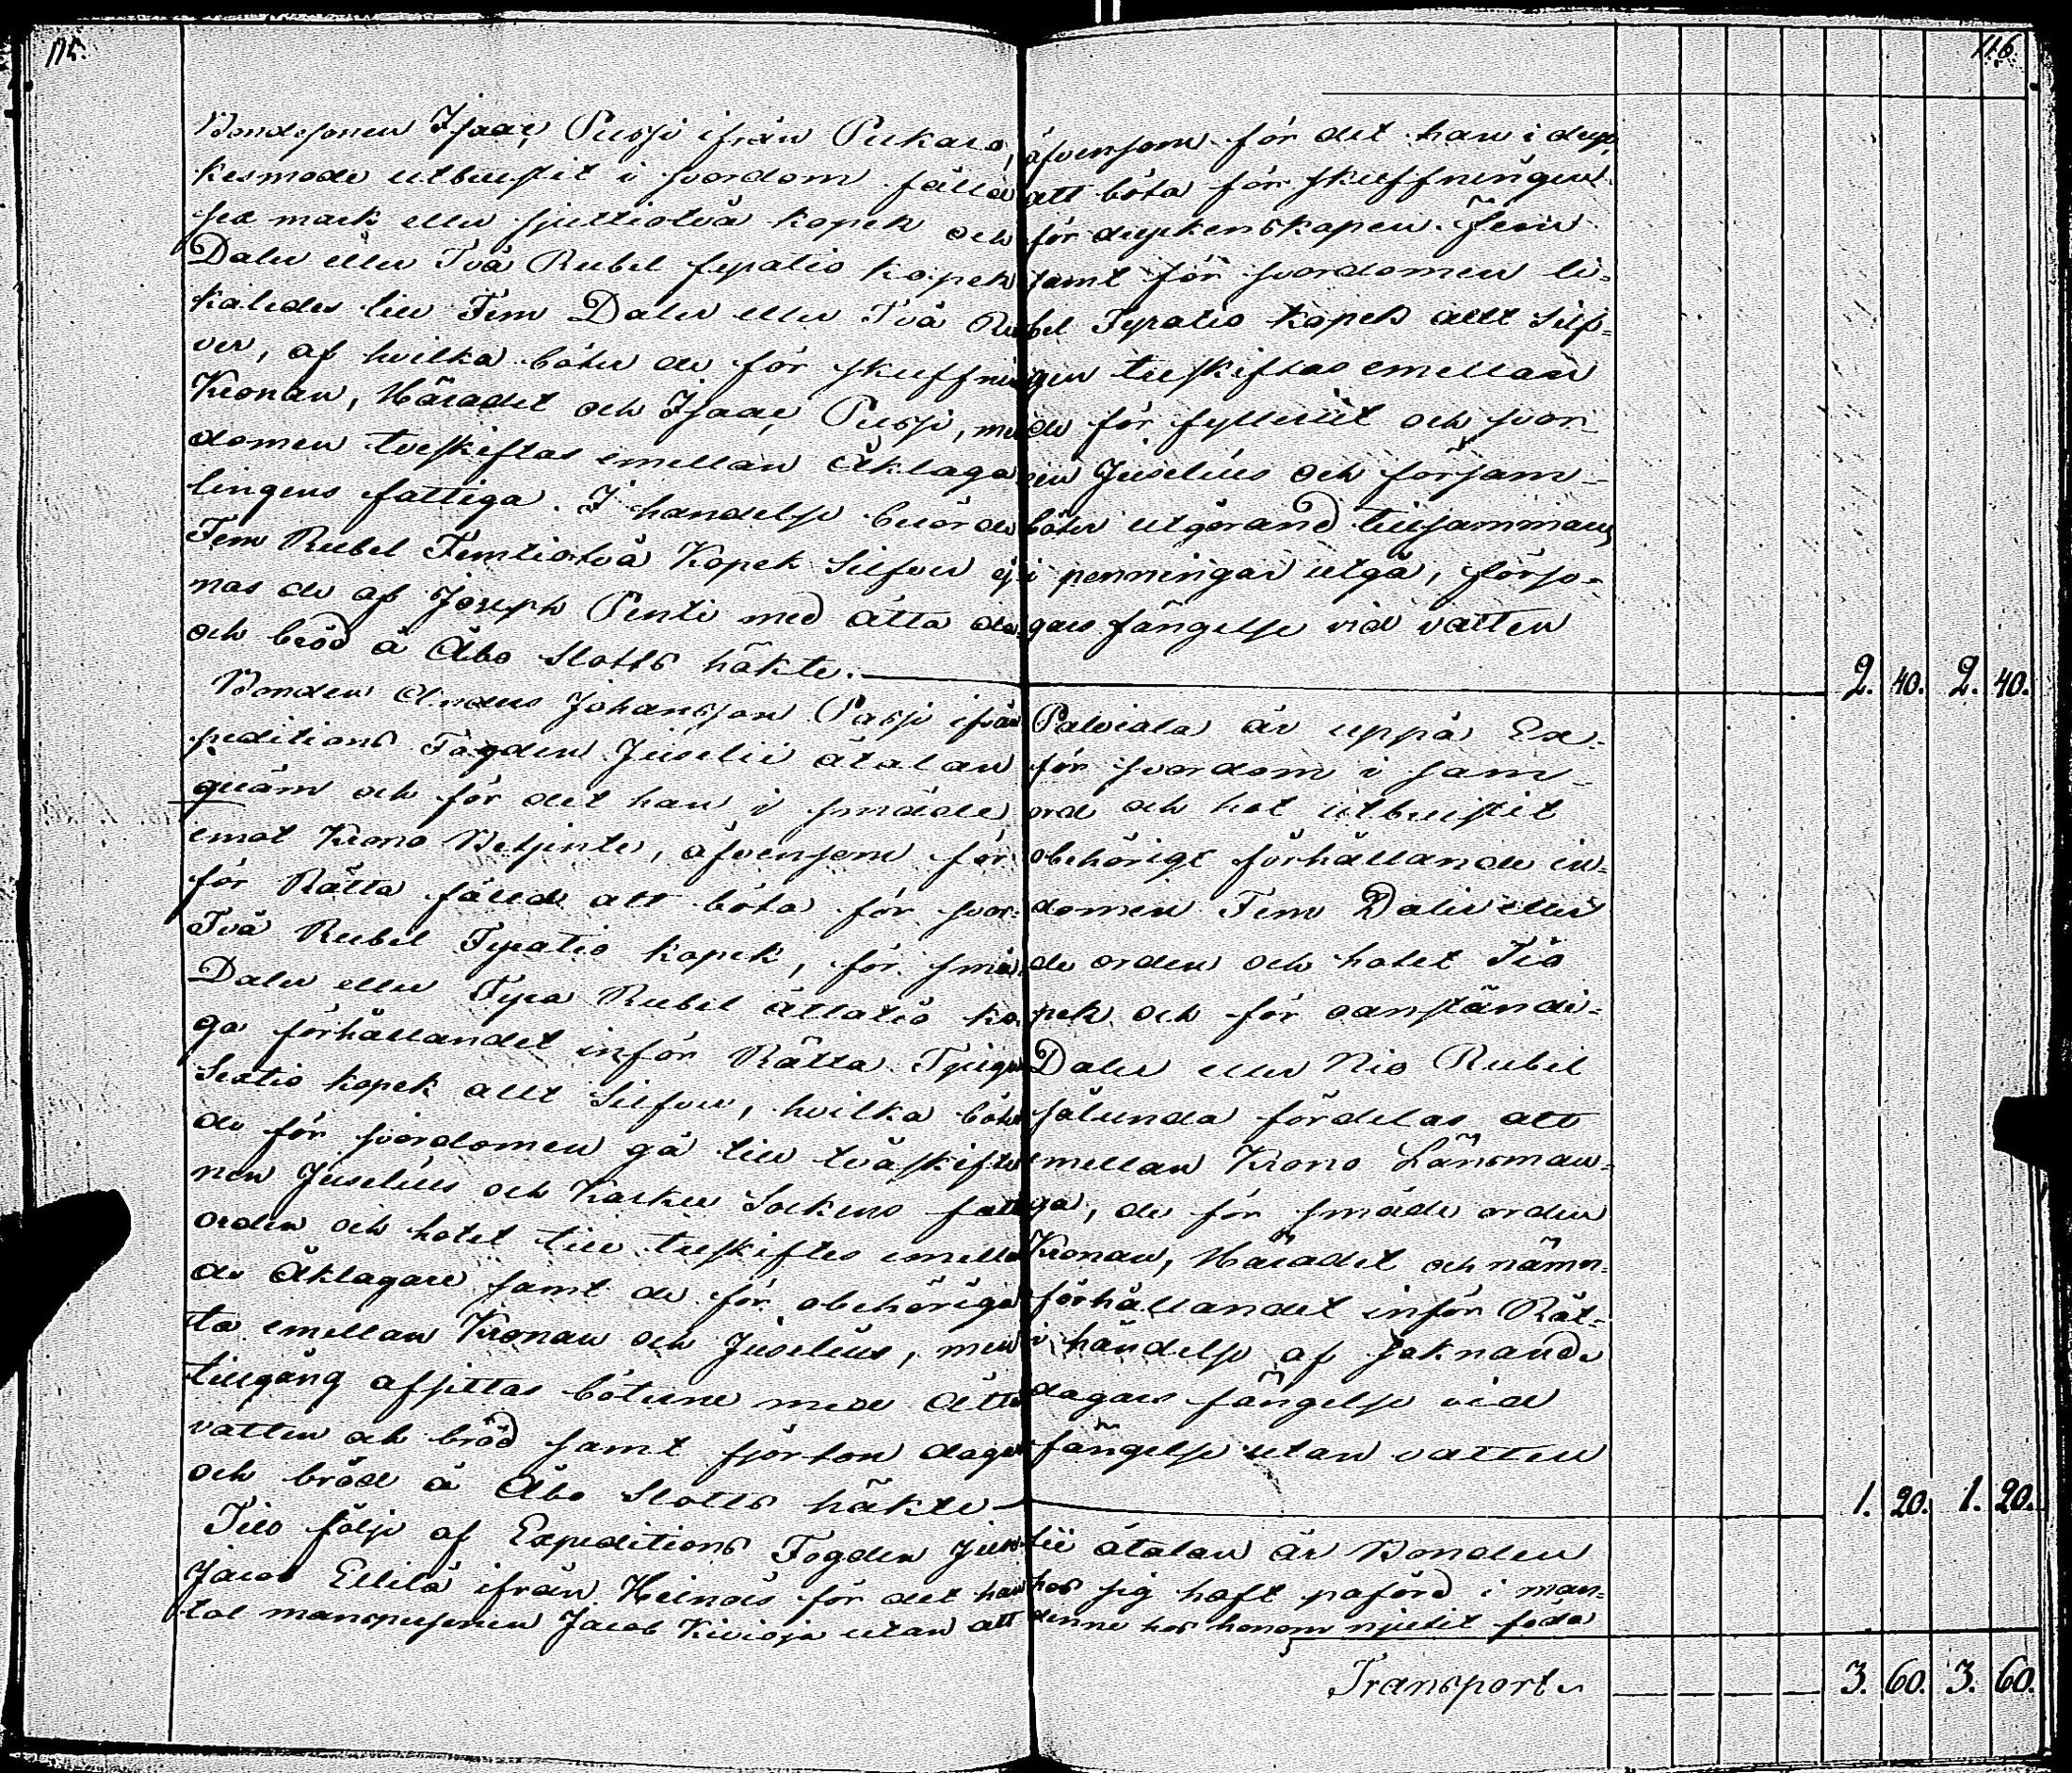 115.
116.
Bondesonen Isaac Pussi ifrån Pukara, äfvensom för det han i dryc-
kesmode utbrustit i svordom fälld att böta för skuffningen
sex mark eller sjuttiotvå kopek och för dryckenskapen Fem
Daler eller Två Rubel fyratio kopek samt för svordomen li-
kaledes till Fem Daler eller Två Rubel Fyratio kopek allt Silf-
ver, af hvilka böter de för skuffningen treskiftas emellan
Kronan, Häradet och Isaac Pussi, men de för fylleriet och svor-
domen tveskiftas emellan Åklagaren Juselius och församm-
lingens fattiga. I händelse berörde böter utgörand tillsammans
Fem Rubel Femtiotvå Kopek Silfver ej i penningar utgå, förso-
nas de af Joseph Penti med åtta dagars fängelse vid vatten
och bröd å Åbo Slotts häkte. 2. 40. 2. 40.
Bonden Anders Johansson Passi ifrån Palviala är uppå Ex-
peditions Fogden Juselii åtalan för svordom i sam-
qväm och för det han i smäde ord och hot utbrustit
emot Krono Betjente, äfvensom för obehörigt förhållande in-
för Rätta fälld att böta för svordomen Fem Daler eller
Två Rubel Fyratio kopek, för smäde orden och hotet Tio
Daler eller Fyra Rubel åttatio kopek och för oanständi-
ga förhållandet inför Rätta Tjugu Daler eller Nio Rubel
Sextio kopek allt Silfver, hvilka böter sålunda fördelas att
de för svordomen gå till tväskifte emellan Krono Länsman-
nen Juselius och Karku Sockens fattiga, de för smäde orden
orden och hotet till treskiftes emellan Kronan, Häradet och nämn-
de Åklagare samt de för obehöriga förhållandet inför Rät-
ta emellan Kronan och Juselius, men i händelse af saknande
tillgång afsittas böterne med Åtta dagars fängelse vid
vatten och bröd samt fjorton dagars fängelse utan vatten
och bröd å Åbo Slotts häkte 1. 20. 1. 20.
Till följe af Expeditions Fogden Juselii åtalan är Bonden
Jacob Ellilä ifrån Heinois för det han hos sig haft påförd i man-
tal manspersonen Jacob Kivioja utan att denne hos honom njutit föda
Transport 3. 60. 3. 60.